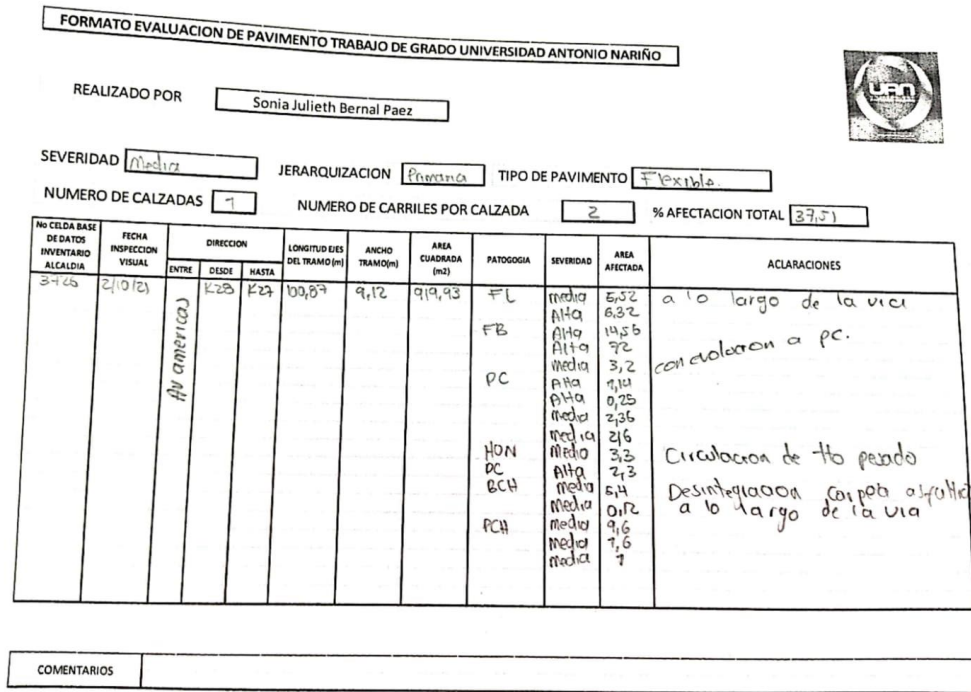 FORMATO EVALUACION DE PAVIMENTO TRABAJO DE GRADO UNIVERSIDAD ANTONIO NARIÑO
UAN
REALIZADO POR Sonia Julieth Bernal Paez
SEVERIDAD Media JERARQUIZACION Primaria TIPO DE PAVIMENTO Flexible.
NUMERO DE CALZADAS 1 NUMERO DE CARRILES POR CALZADA 2 % AFECTACION TOTAL 37,51
No CELDA BASE DE DATOS INVENTARIO ALCALDIA FECHA INSPECCION VISUAL DIRECCION ENTRE DESDE HASTA LONGITUD EJES DEL TRAMO (m) ANCHO TRAMO(m) AREA CUADRADA (m2) PATOGOGIA SEVERIDAD AREA AFECTADA ACLARACIONES
2/10/21 Av americas K28 K27 100,87 9,12 919,93 FL media 5,52 a lo largo de la via
Alta 6,32
FB Alta 14,55
Alta 72
media 3,2 con evolucion a pc.
PC Alta 1,14
Alta 0,25
media 2,36
media 2,6
HON Medio 3,3 Circulacion de tto pesado
DC Alta 2,3
BCH media 5,4 Desintegracion carpeta
media 0,12 a lo largo de la via
PCH medio 9,6
medio 1,6
media 1
COMENTARIOS